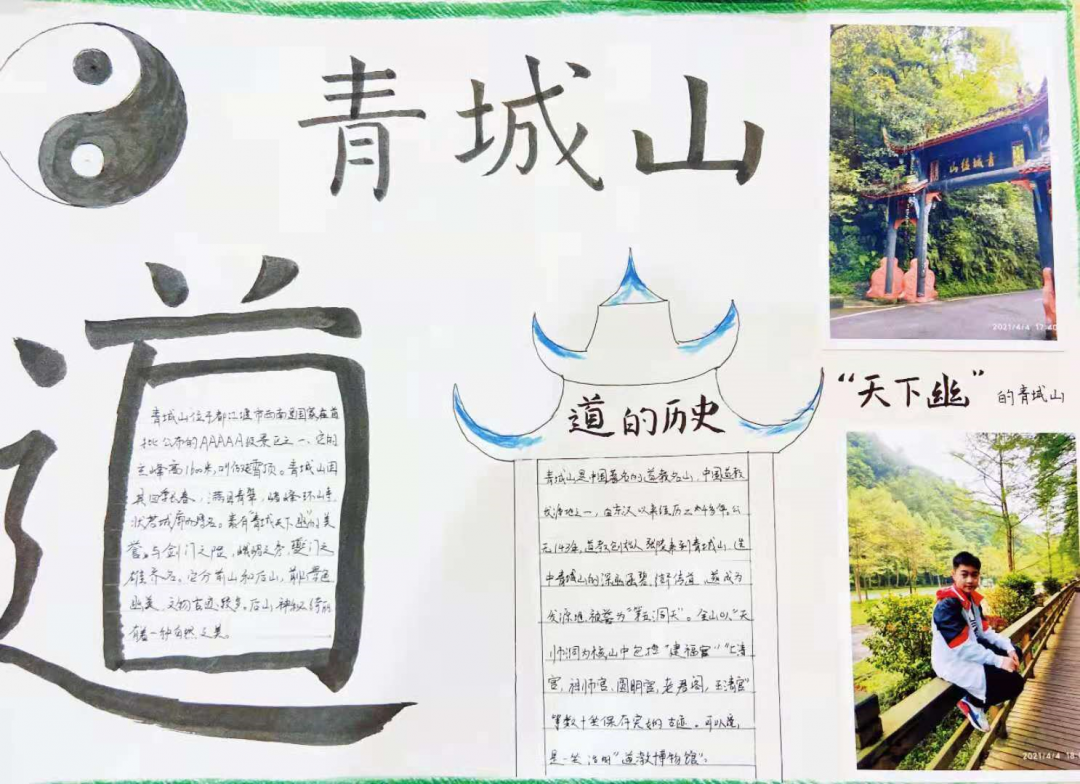 青城山
青城后山
2021/4/4 17:40
道
青城山位于都江堰市西南是国家旅游首
批公布的AAAAA级景区之一、它的
主峰高1600米,叫作老霄顶。青城山因
其四季长春,满目青翠,诸峰环峙,
状若城廓而得名。素有"青城天下幽"的美
誉。与剑门之险,峨眉之秀,夔门之
雄齐名。它分前山和后山,前山景色
幽美、文物古迹较多。后山,神秘绮丽
有着一种自然之美。
道的历史
青城山是中国著名的道教名山,中国道教
发源地之一,自东汉以来经历二千多年。公
元143年,道教创始人张陵来到青城山,选
中青城山的深幽涵碧,结茅传道,遂成为
发源地,被誉为"第五洞天"。全山以"天
师洞为核心中包括"建福宫""上清
宫,祖师宫,圆明宫,老君阁,玉清宫"
等数十坐保存完好的古迹。可以说
是一坐活的"道教博物馆"。
"天下幽"的青城山
2021/4/4 18